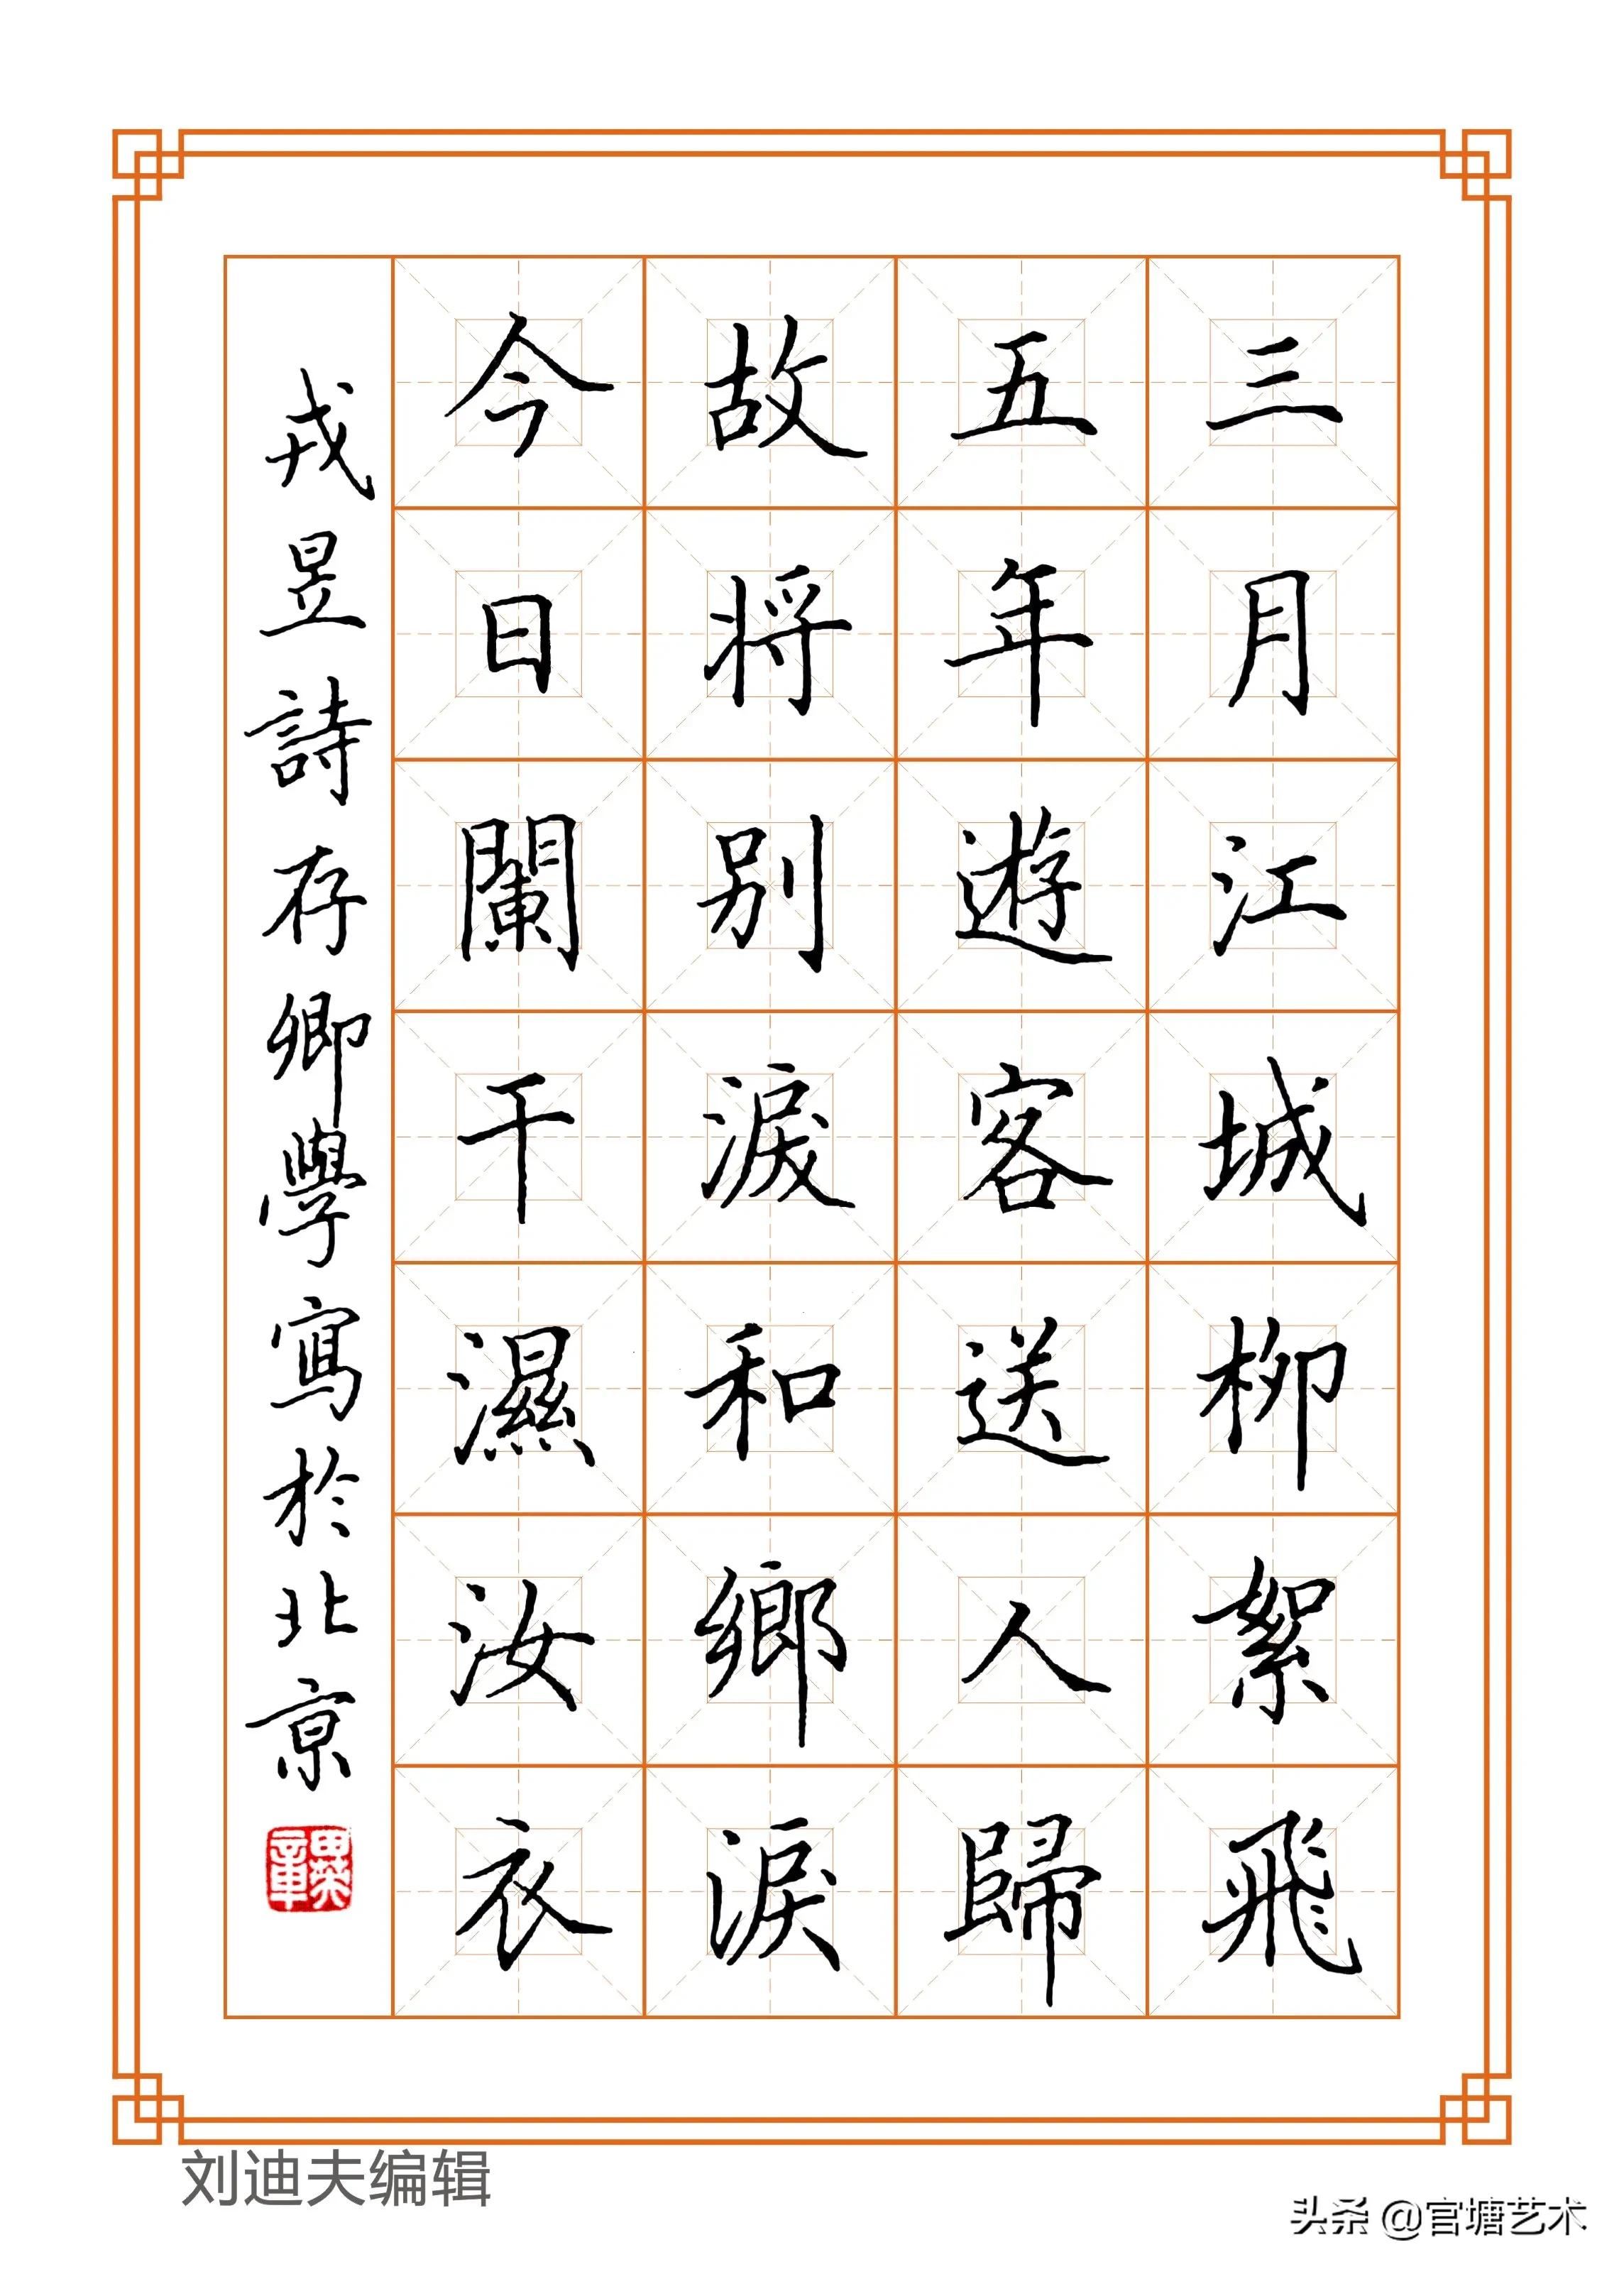 三月江城柳絮飛
五年遊客送人歸
故将别淚和鄉淚
今日闌干濕汝衣
戎昱詩存卿學寫於北京
刘迪夫编辑
头条 @官塘艺术